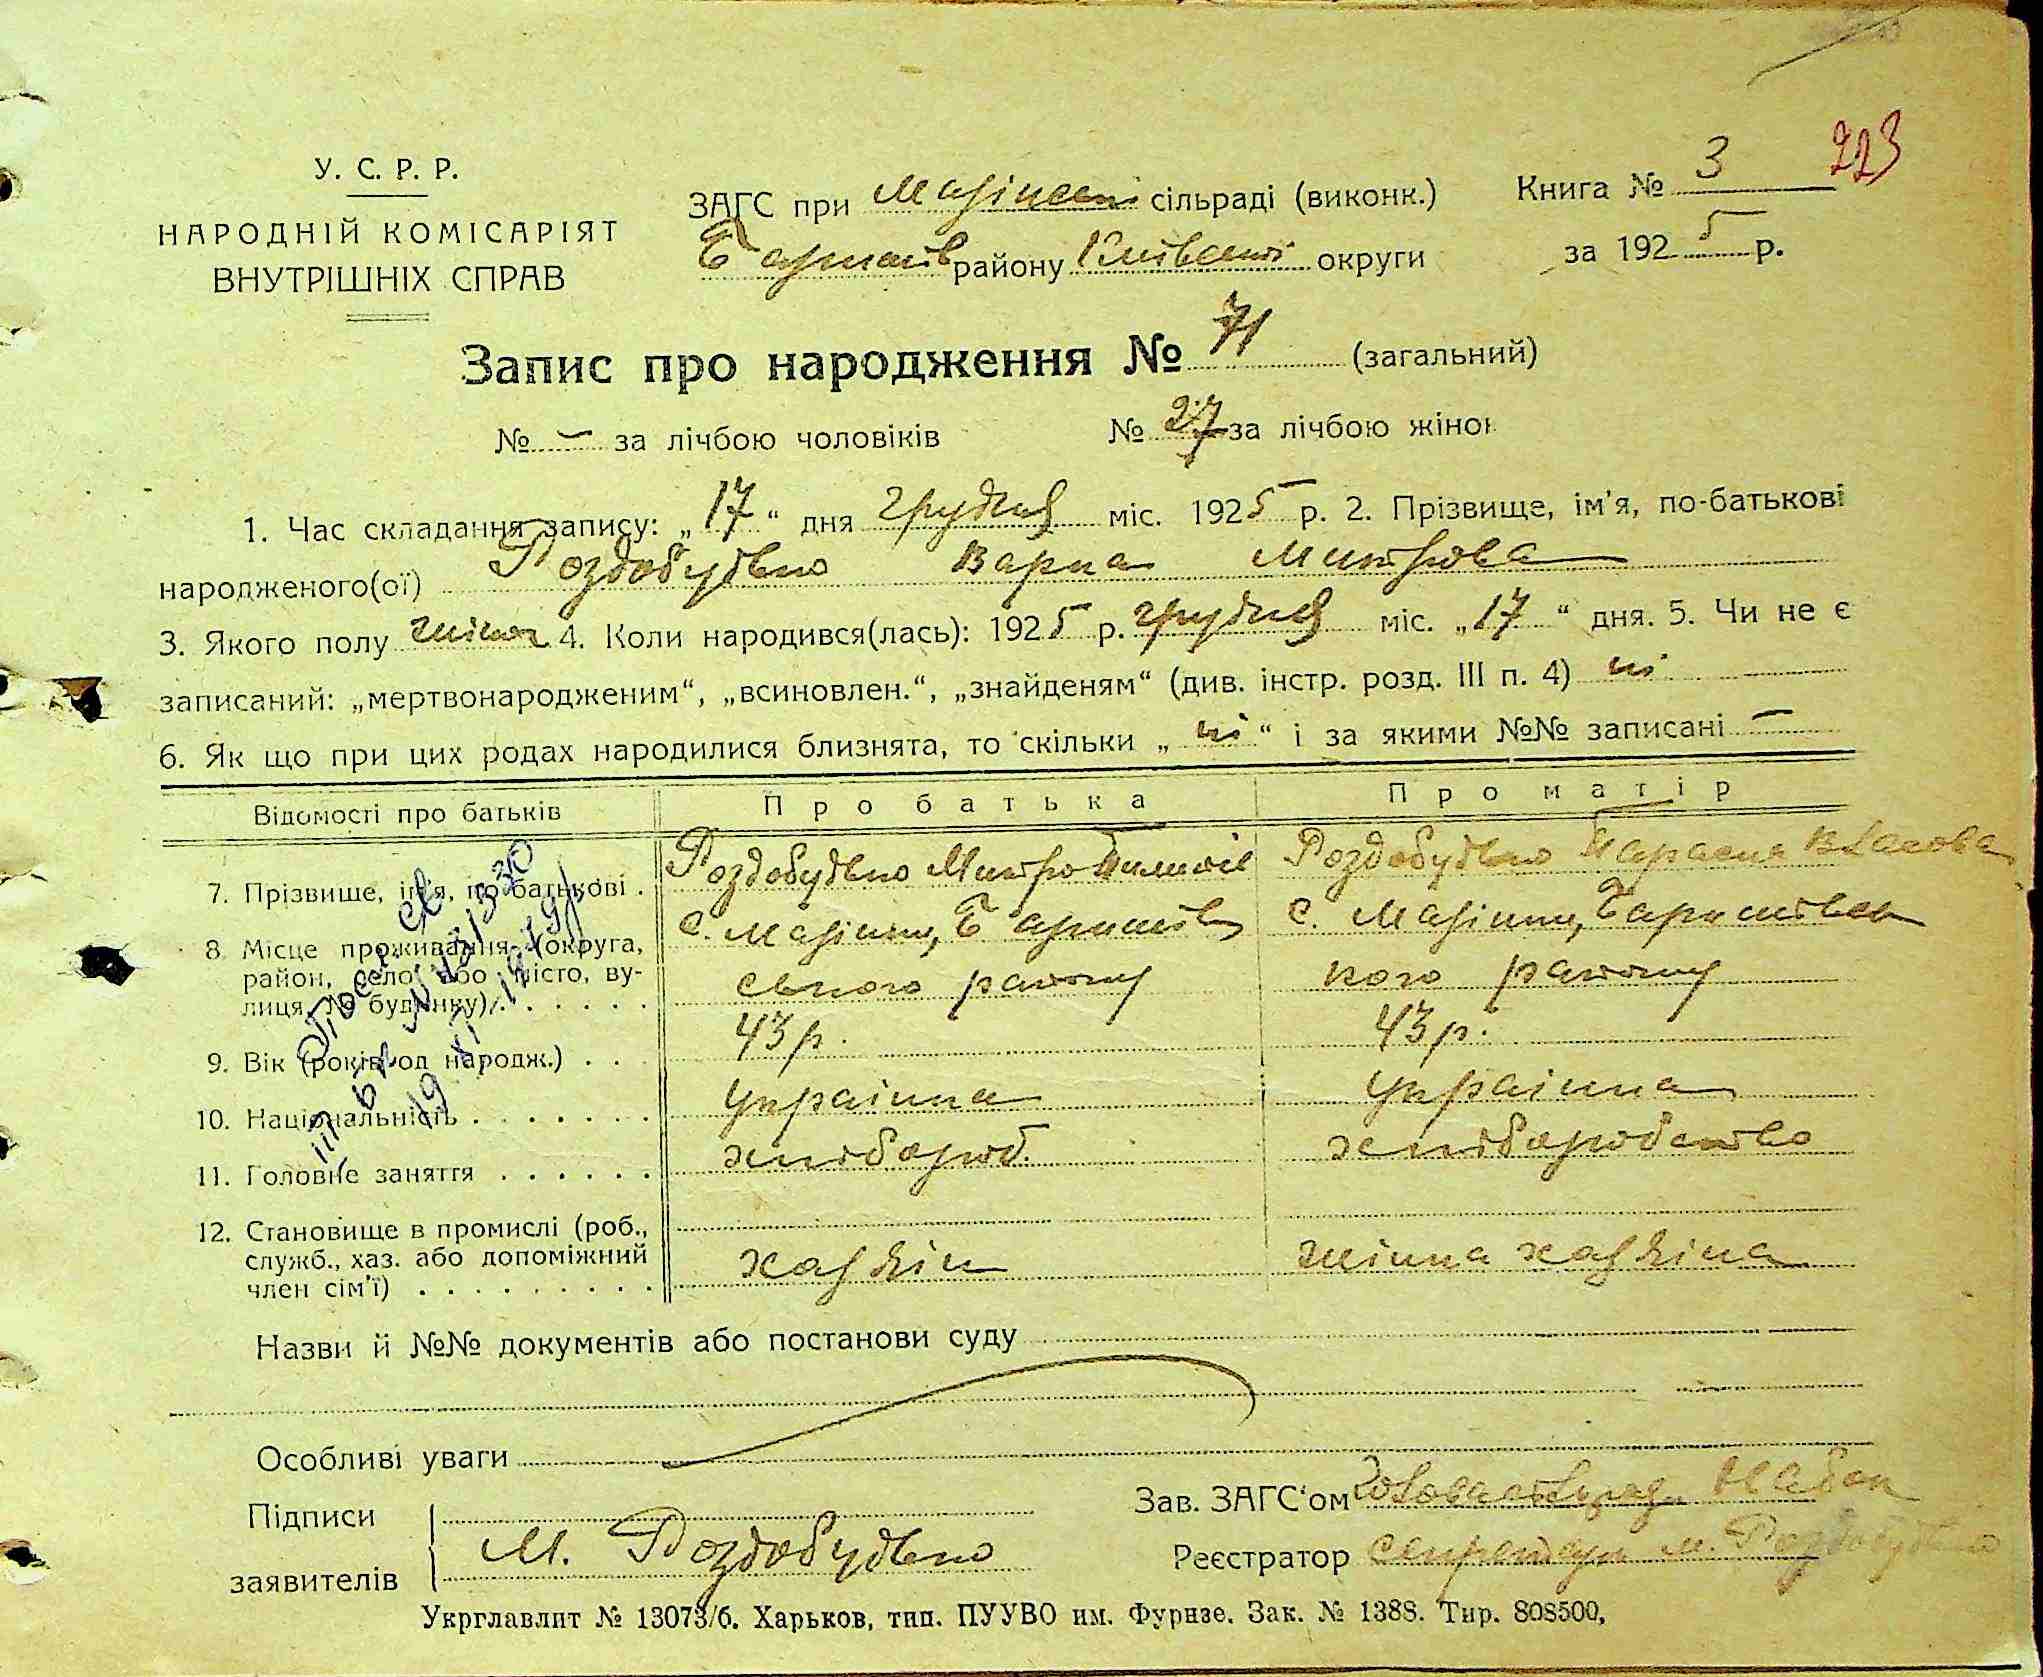 223
У. С. Р. Р.
НАРОДНІЙ КОМІСАРІЯТ
ВНУТРІШНІХ СПРАВ
ЗАГС при сільраді (виконк.)
району округи
Книга № 3
за 1925 р.
Запис про народження № 71 (загальний)
№ – за лічбою чоловіків № 27 за лічбою жінок
1. Час складання запису: „17“ дня грудня міс. 1925 р. 2. Прізвище, ім'я, по-батькові
народженого(ої) Роздобудько Варка Митрова
3. Якого полу жіноч 4. Коли народився(лась): 1925 р. грудня міс. „17“ дня. 5. Чи не є
записаний: „мертвонародженим“, „всиновлен.“, „знайденям“ (див. інстр. розд. III п. 4) ні
6. Як що при цих родах народилися близнята, то скільки „ні“ і за якими №№ записані –
Відомості про батьків Про батька Про матір
7. Прізвище, ім'я, по-батькові . Роздобудько Митро Роздобудько Параска Власова
8. Місце проживання (округа, район, село або місто, вулиця, № будинку) с. Баришів
ського району с. Баришівсь
кого району
9. Вік (років од народж.) . . 43 р. 43 р.
10. Національність . . . . . . . українка українка
11. Головне заняття . . . . . . хлібороб. хліборобство
12. Становище в промислі (роб., служб., хаз. або допоміжний член сім'ї) . . . . . . . . . хазяїн жінка хазяїна
Назви й №№ документів або постанови суду
Особливі уваги
Підписи
заявителів М. Роздобудько
Зав. ЗАГС'ом
Реєстратор секретарь М. Роздобудько
Укрглавлит № 13073/б. Харьков, тип. ПУУВО им. Фрунзе. Зак. № 1388. Тир. 808500,